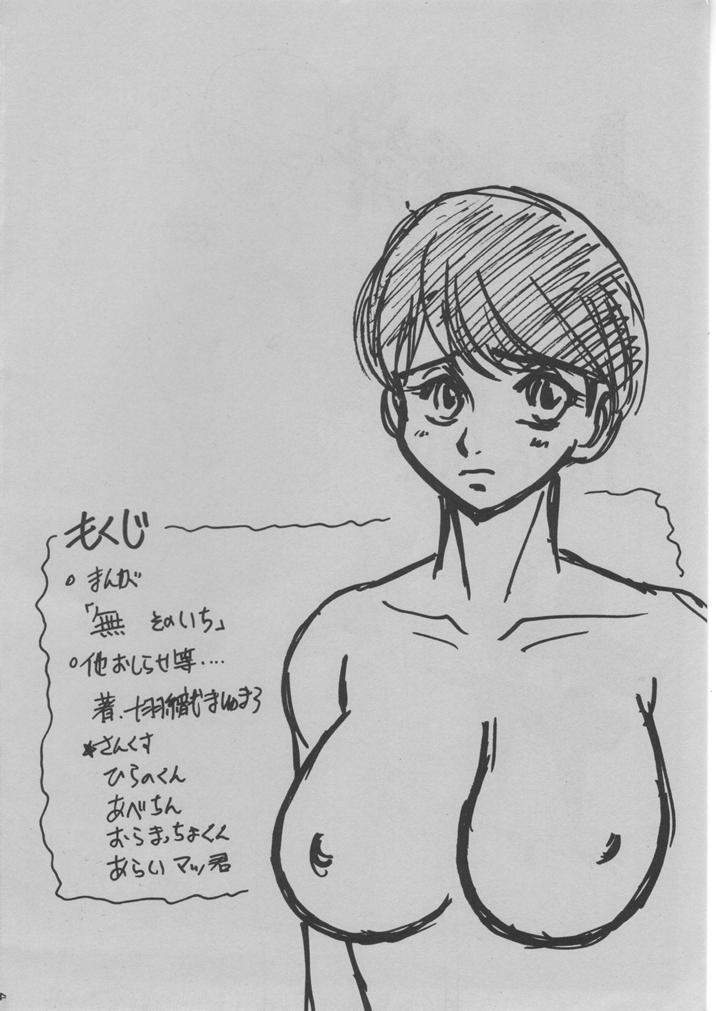 もくじ
○ まんが
「無 そのいち」
○他おしらせ等・・・・
著、羽織ましゅまろ
*さんくす
ひらのくん
あべちん
むらまっちょくん
あらいマッ君